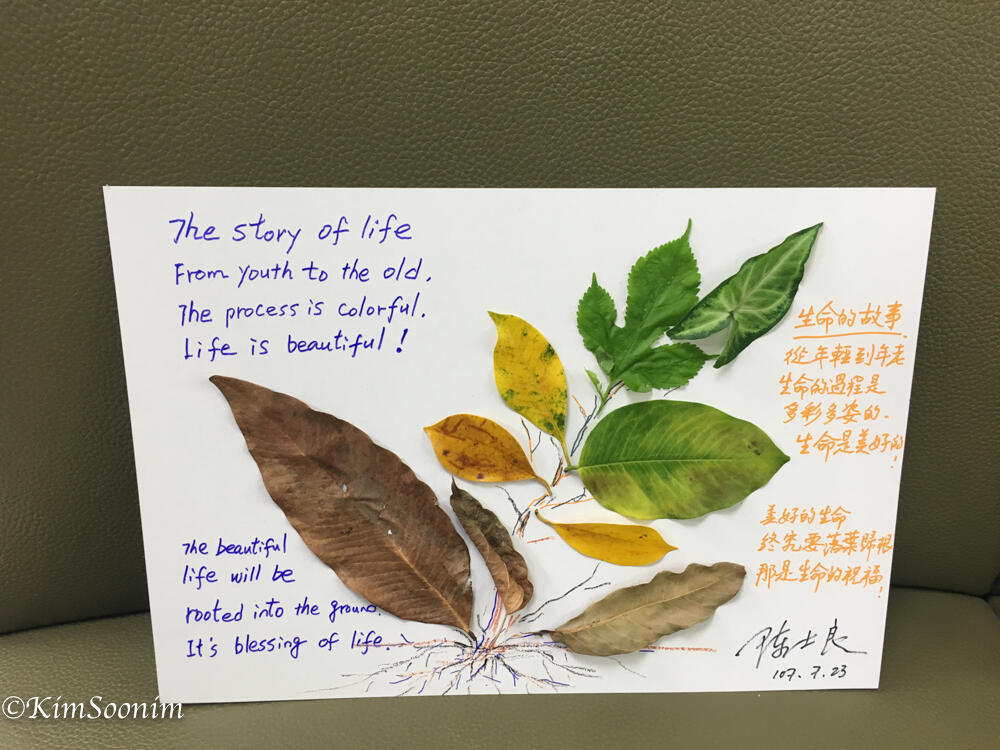 The story of life
From youth to the old.
The process is colorful.
Life is beautiful!
The beautiful
life will be
rooted into the ground.
It's blessing of life.
生命的故事
從年輕到年老
生命的過程是
多彩多姿的.
生命是美好的!
美好的生命
終究要落葉歸根
那是生命的祝福!
陳士良
107.7.23
©KimSoonim